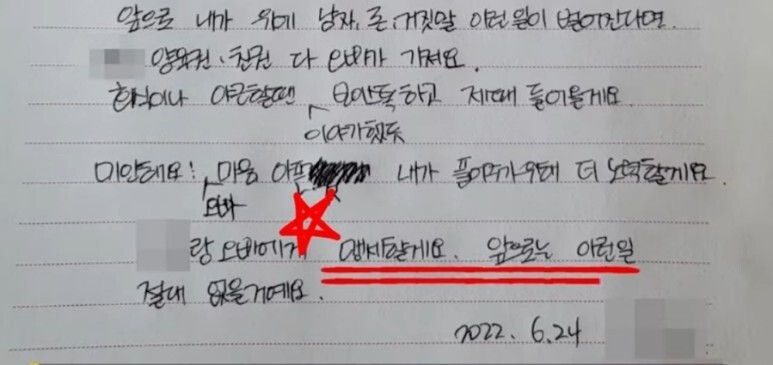 앞으로 내가 위에 남자, 돈, 거짓말 이런일이 벌어진다면.
양육권. 친권 다 오빠가 가져요.
회식이나 야근할땐 보안톡하고 제때 들어올게요
이야기했듯
미안해요! 마음 아프 내가 풀어주기위해 더 노력할게요.
오빠
랑 오빠에게 맹세할게요. 앞으로는 이런일
절대 없을거예요.
2022. 6.24